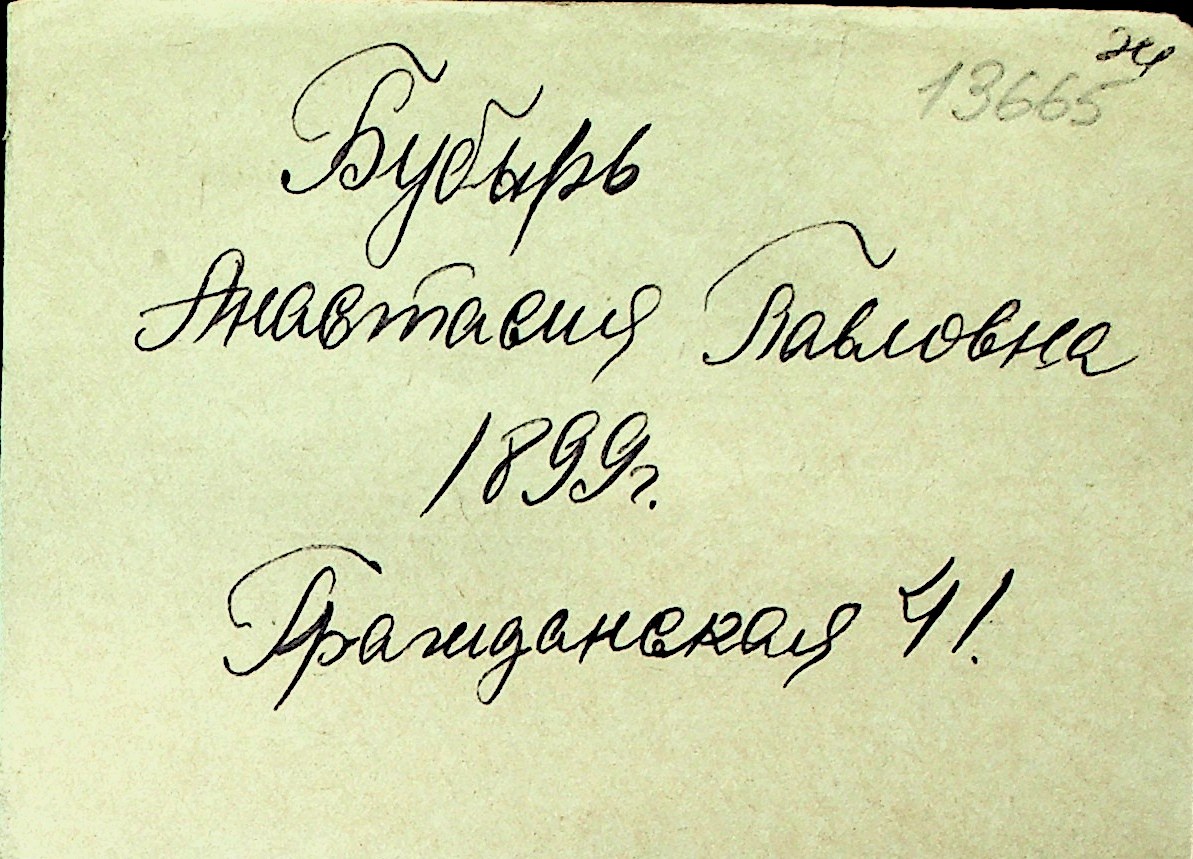 13665
Бубырь
Анастасия Павловна
1899г.
Гражданская 41.